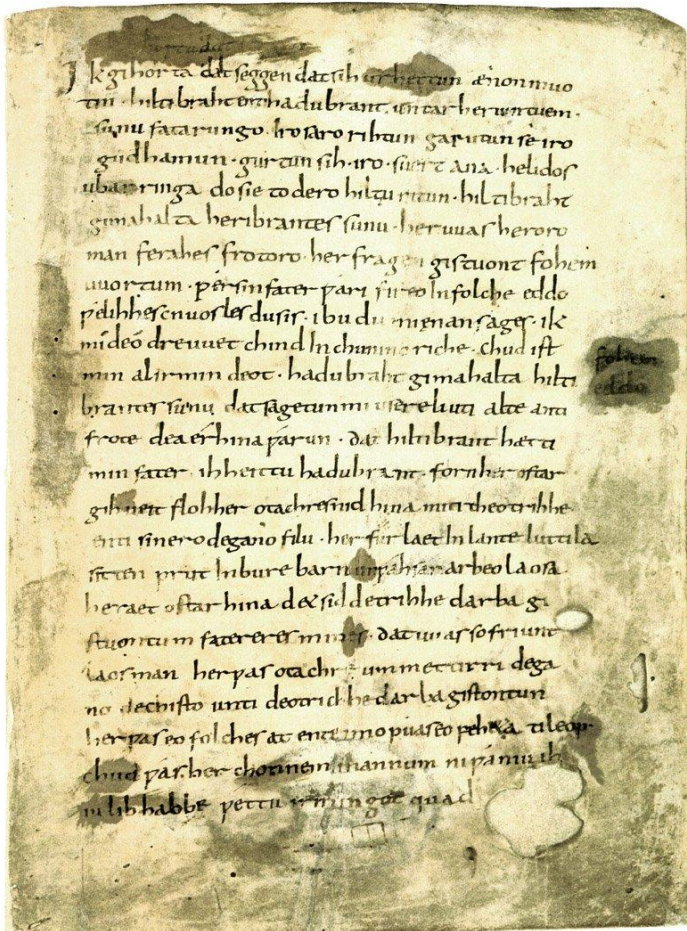 Ik gihorta dat seggen dat sih urhettun ænon muo
tin · hiltibraht enti hadubrant · untar heriun tuem ·
sunu fatarungo · iro saro rihtun garutun se iro
gudhamun · gurtun sih · iro · suert ana · helidos
ubar ringa do sie to dero hiltu ritun · hiltibraht
gimahalta heribrantes sunu · her uuas heroro
man ferahes frotoro · her fragen gistuont fohem
uuortum · ƿer sin fater ƿari fireo In folche eddo
ƿelihhes cnuosles du sis · ibu du mi enan sages · ik
mi de o dre uuet chind In chunincriche · Chud ist
min al irmin deot · hadubraht gimahalta hilti
brantes sunu dat sagetun mi usere liuti alte anti
frote dea er hina ƿarun · dat hiltibrant hætti
min fater · ih heittu hadubrant · forn her ostar
gihueit floh her otachres nid hina miti theotrihhe
enti sinero degano filu · her furlaet In lante luttila
sitten prut In bure barn unƿahsan arbeo laosa
heraet ostar hina d& sid detrihhe darba gi
stuontum fatereres mines · dat uuas so friunt
laos man her ƿas otachre ummettirri dega
no dechisto unti deotrichhe darba gistontun
her ƿas eo folches at ente imo ƿuas eo feh&a ti leop
chud ƿas her chonnem mannum ni ƿaniu ih
iu lib habbe ƿettu irmingot quad